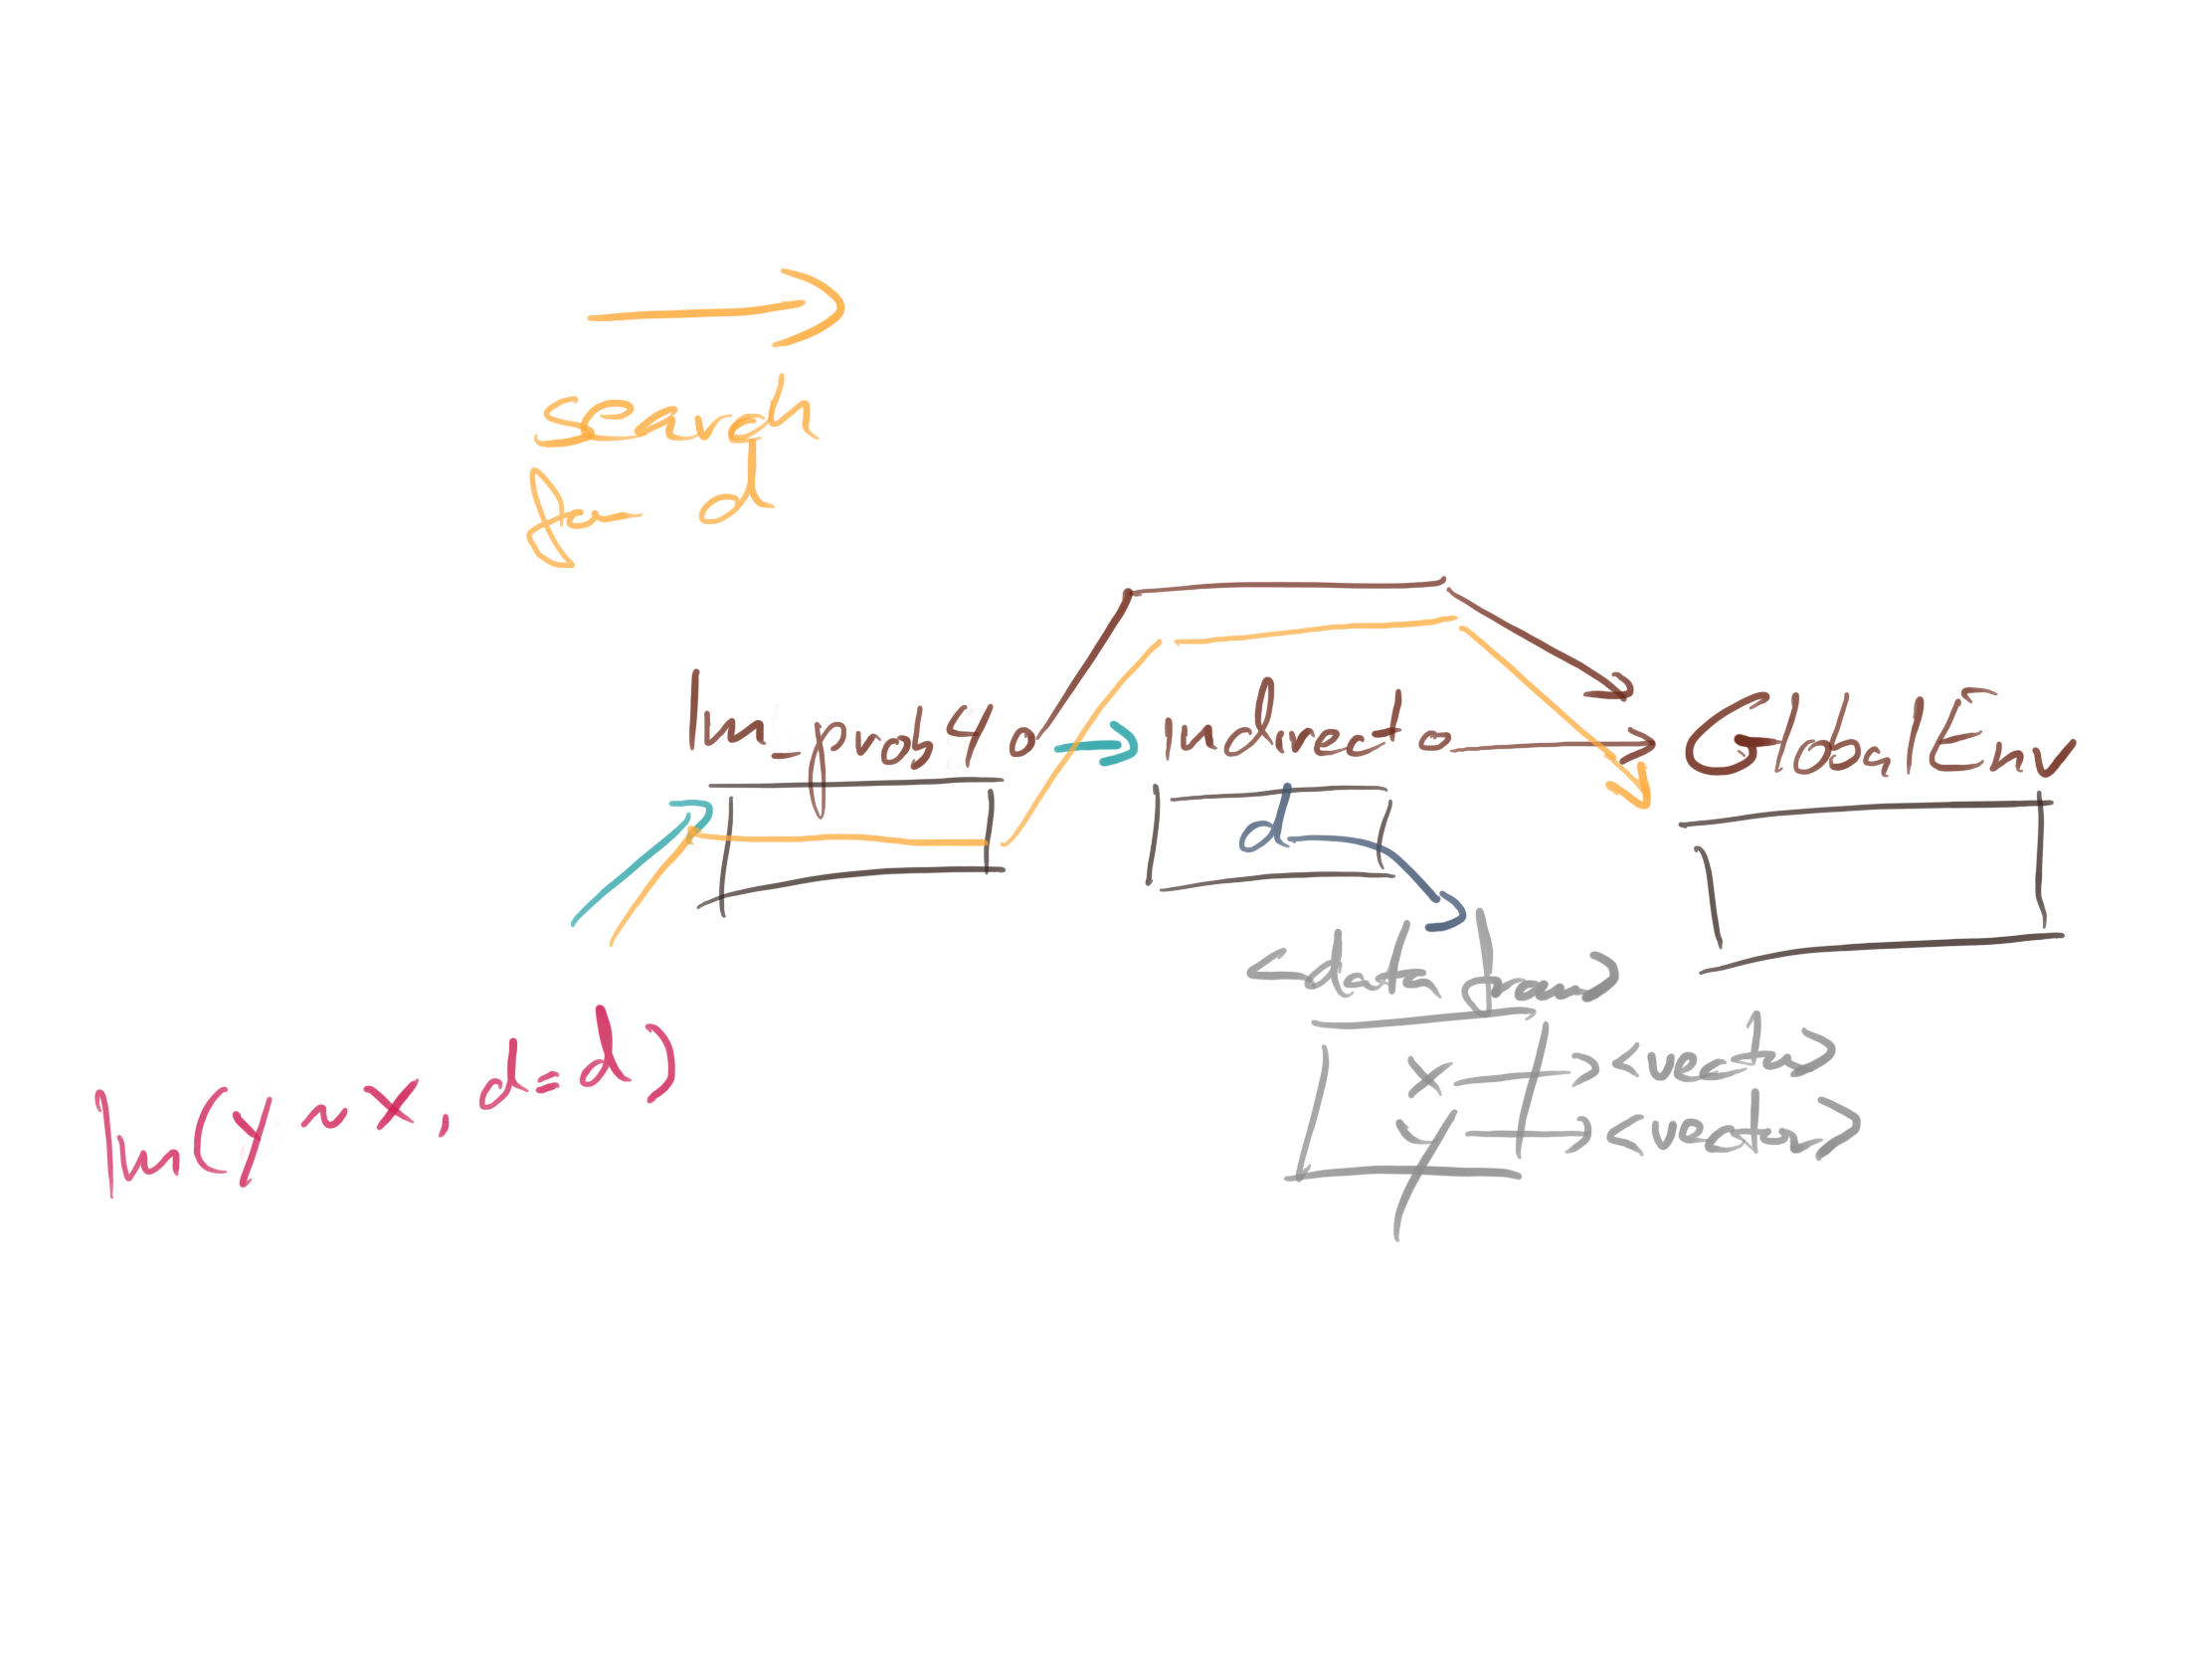 search
for d
lm_prog4
indirect
GlobalEnv
d
<data.frame>
x
<vector>
y
<vector>
lm(y~x, d=d)